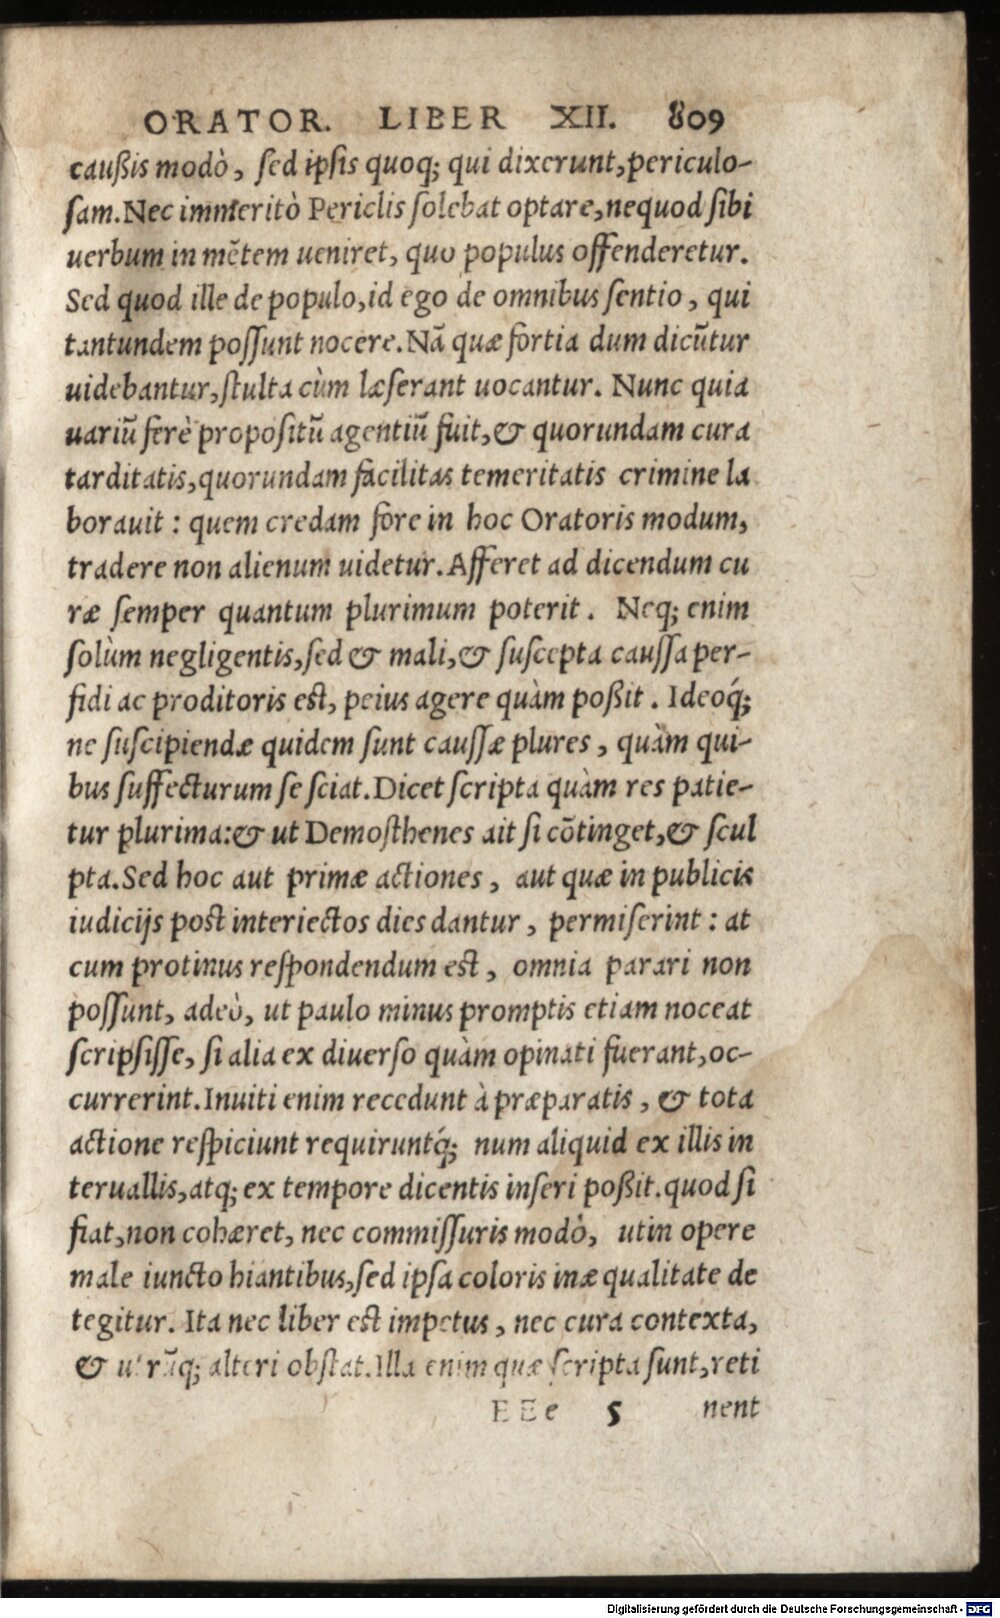 ORATOR. LIBER XII. 809
caußis modò, sed ipsis quoq; qui dixerunt, periculo-
sam. Nec immeritò Periclis solebat optare, nequod sibi
uerbum in mētem ueniret, quo populus offenderetur.
Sed quod ille de populo, id ego de omnibus sentio, qui
tantundem possunt nocere. Nā quæ fortia dum dicūtur
uidebantur, stulta cùm læserant uocantur. Nunc quia
uariū ferè propositū agentiū fuit, & quorundam cura
tarditatis, quorundam facilitas temeritatis crimine la
borauit: quem credam fore in hoc Oratoris modum,
tradere non alienum uidetur. Afferet ad dicendum cu
ræ semper quantum plurimum poterit. Neq; enim
solùm negligentis, sed & mali, & suscepta caussa per-
fidi ac proditoris est, peius agere quàm poßit. Ideoq́;
ne suscipiendæ quidem sunt caussæ plures, quàm qui-
bus suffecturum se sciat. Dicet scripta quàm res patie-
tur plurima: & ut Demosthenes ait si cōtinget, & scul
pta. Sed hoc aut primæ actiones, aut quæ in publicis
iudicijs post interiectos dies dantur, permiserint: at
cum protinus respondendum est, omnia parari non
possunt, adeò, ut paulo minus promptis etiam noceat
scripsisse, si alia ex diuerso quàm opinati fuerant, oc-
currerint. Inuiti enim recedunt à præparatis, & tota
actione respiciunt requiruntq́; num aliquid ex illis in
teruallis, atq; ex tempore dicentis inseri poßit. quod si
fiat, non cohæret, nec commissuris modò, utin opere
male iuncto hiantibus, sed ipsa coloris inæqualitate de
tegitur. Ita nec liber est impetus, nec cura contexta,
& utrūq; alteri obstat. Illa enim quæ scripta sunt, reti
EEe 5 nent
Digitalisierung gefördert durch die Deutsche Forschungsgemeinschaft - DFG